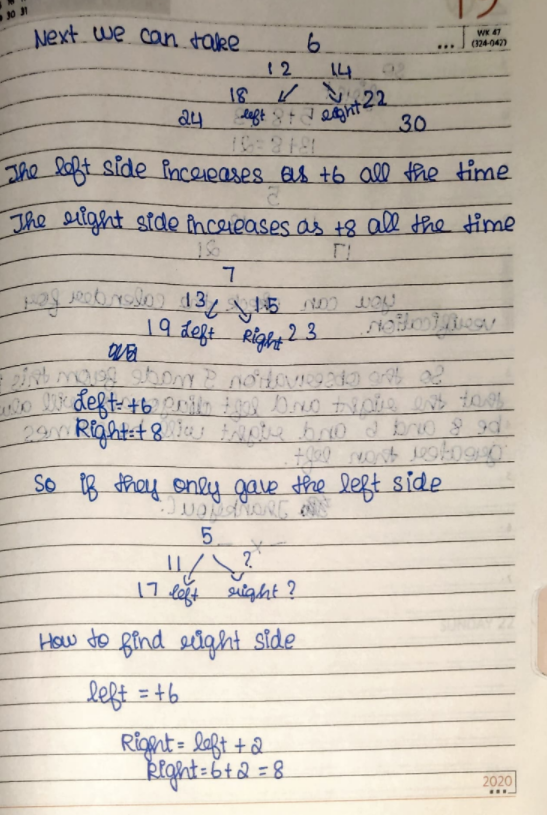 30 31
WK 47
(324-042)
Next we can take 6
12 14
18 22
left right
24 30
The left side increases as +6 all the time
The right side increases as +8 all the time
7
13 15
19 Left Right 23
Left = +6
Right = +8
So if they only gave the left side
5
11 ?
17 left right ?
How to find right side
left = +6
Right = left + 2
Right = 6 + 2 = 8
2020